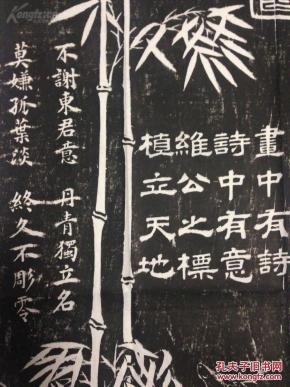 畫中有詩
詩中有意
維公之標
植立天地
不謝東君意 丹青獨立名
莫嫌孤葉淡 終久不彫零
孔夫子旧书网